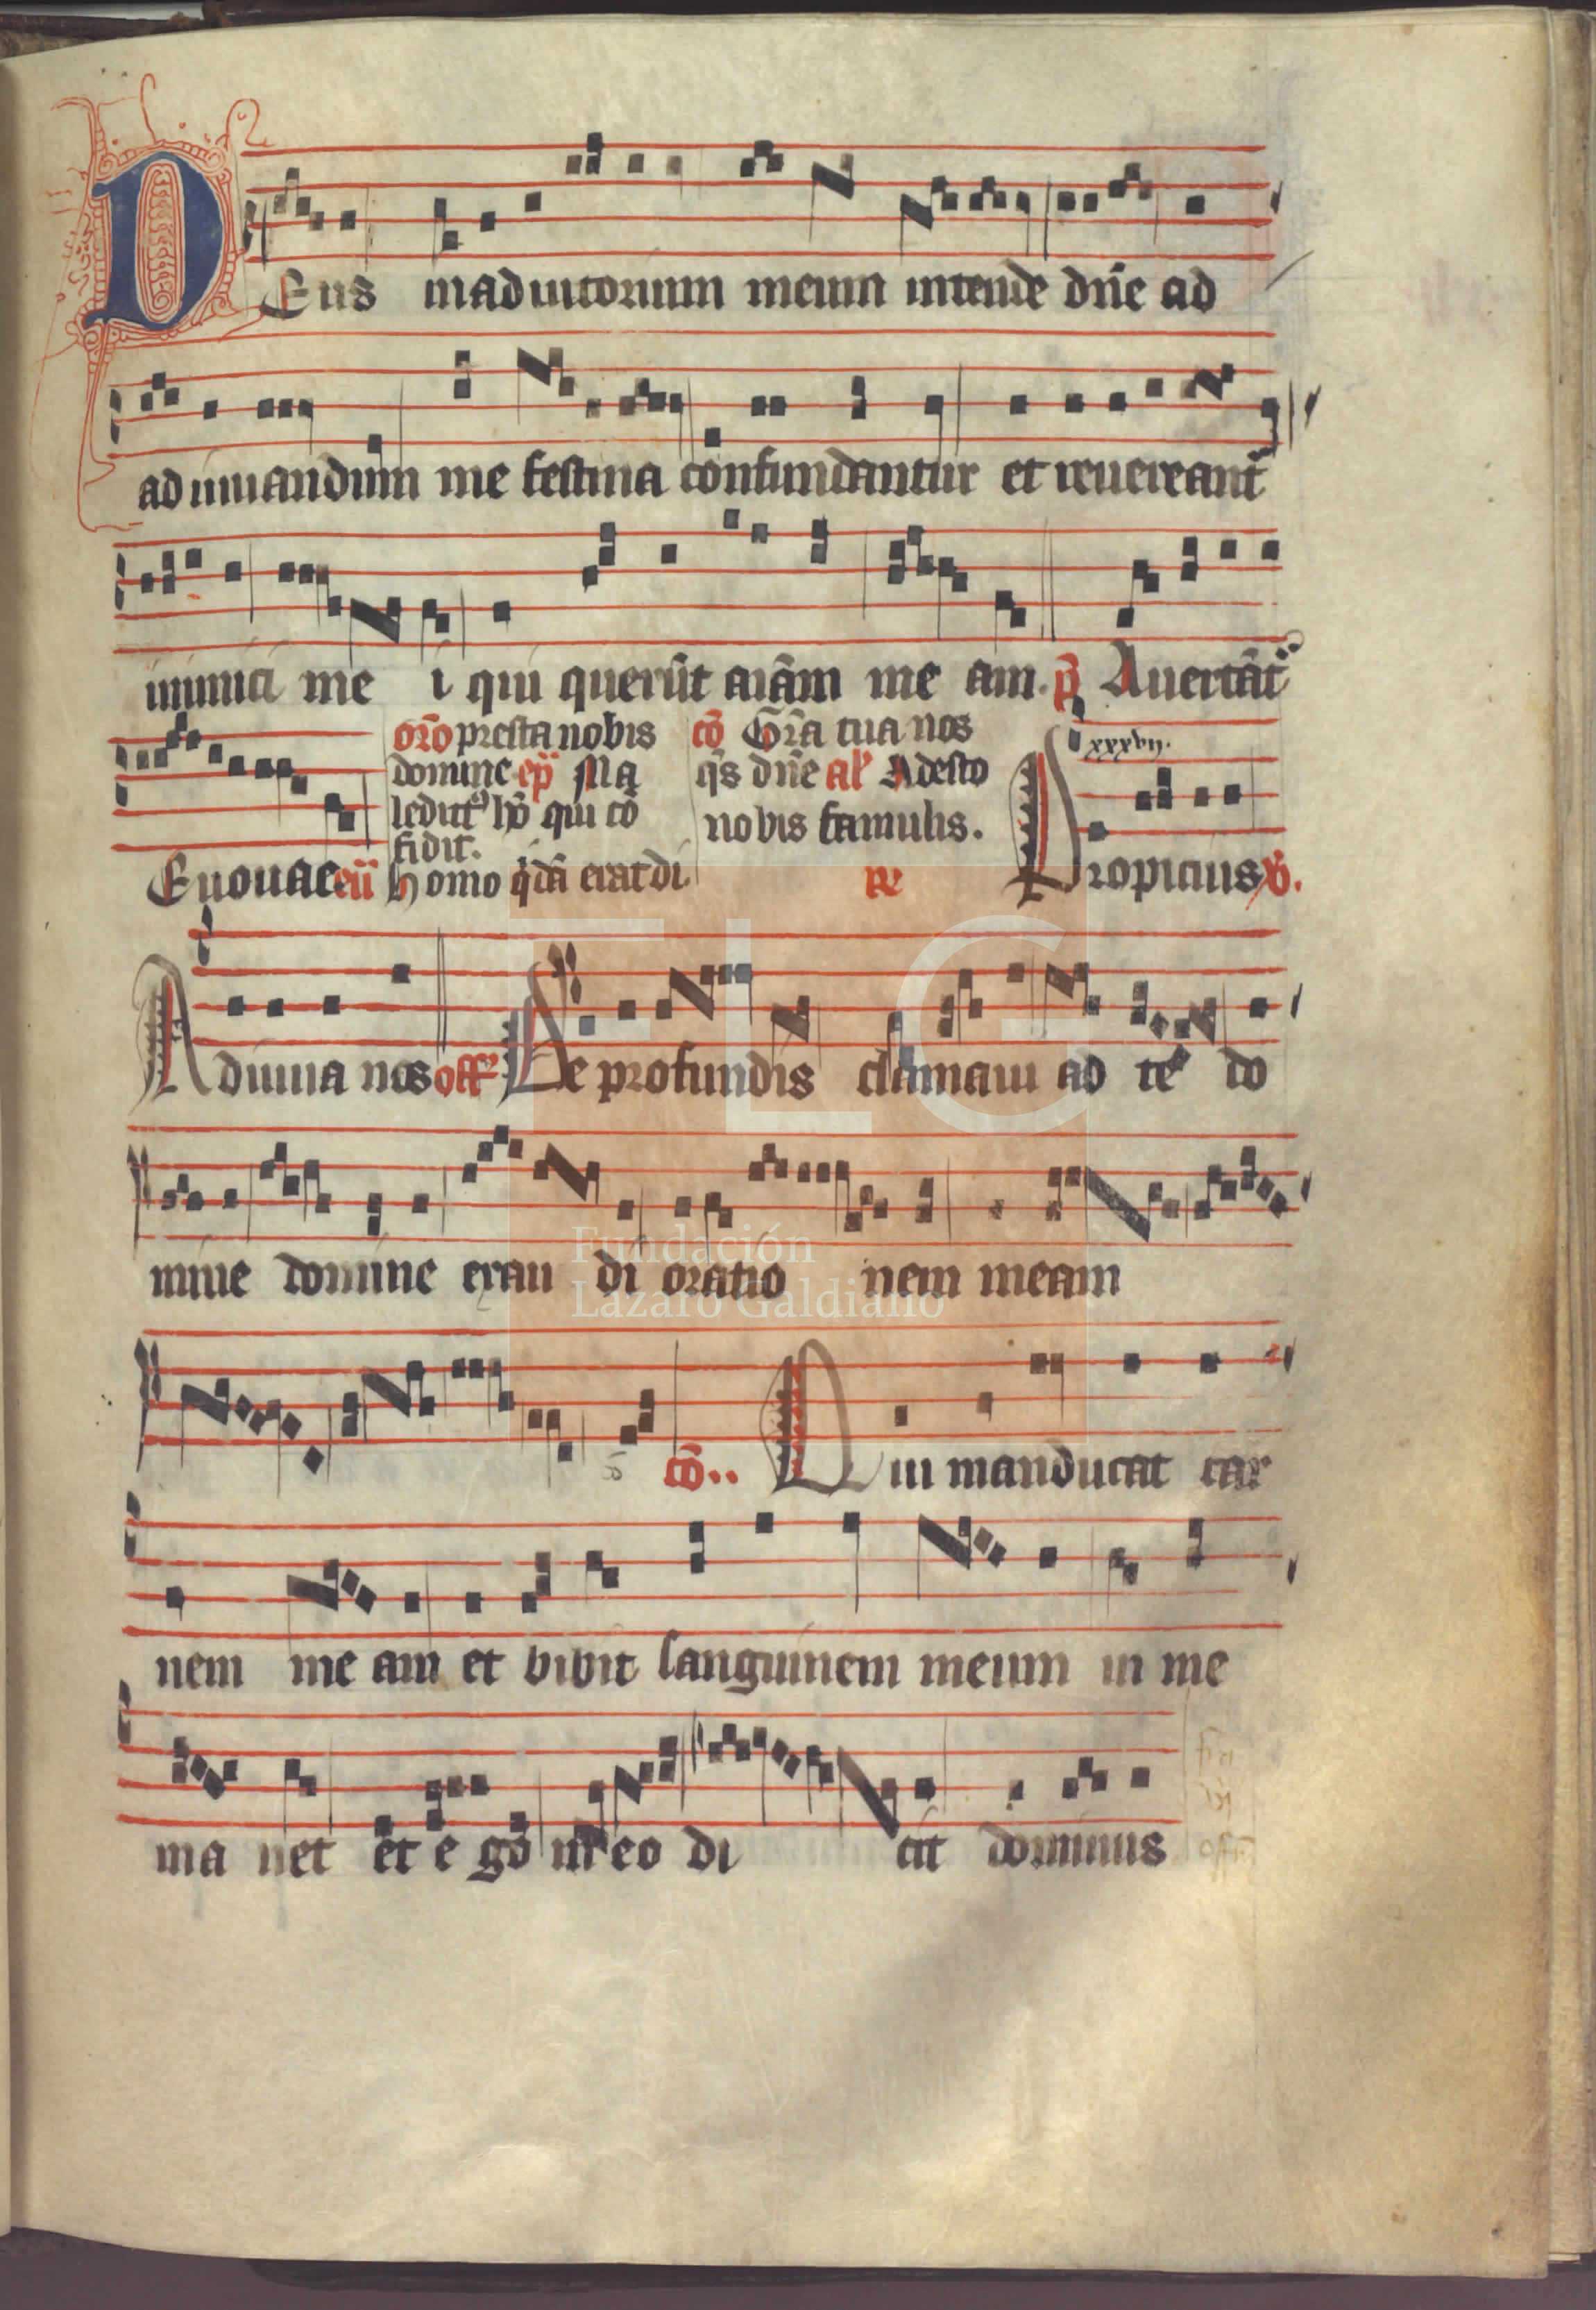 DEus in adiutorium meum intende dn̄e ad
adiuuandum me festina confundantur et reuereant᷑
inimici me i qui querūt aīam me am. p̄ Auertāt᷑
oro presta nobis
domine ep̄ Ma
ledict᷑ hō qui cō
fidit.
cō Gr̄a tua nos
q̄s dn̄e al' Adesto
nobis famulis.
xxxvij.
Euouae eū homo qdā erat di
R Propicius V.
Adiuua nos off De profundis clamaui ad te do
mine domine exau di oratio nem meam
cō.. Qui manducat car
nem me am et bibit sanguinem meum in me
ma net et e go in eo di cit dominus
FLG
Fundación
Lázaro Galdiano